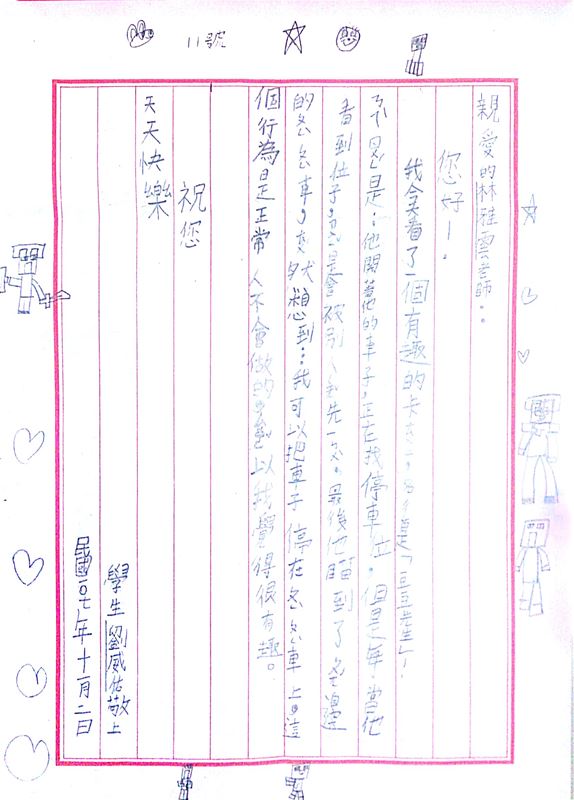 11號
親愛的林雅雲老師：
您好！
我今天看了一個有趣的卡 名 是「豆豆先生」！
是：他開著他的車子，正在找停車位。但是，每當他
看到位子，總是會被別人 先一步。最後他瞄到了路邊
的 車，突然想到：我可以把車子停在 車上。這
個行為是正常人不會做的 以我覺得很有趣。
祝您
天天快樂
學生劉威佑敬上
民國一〇七年十一月二日